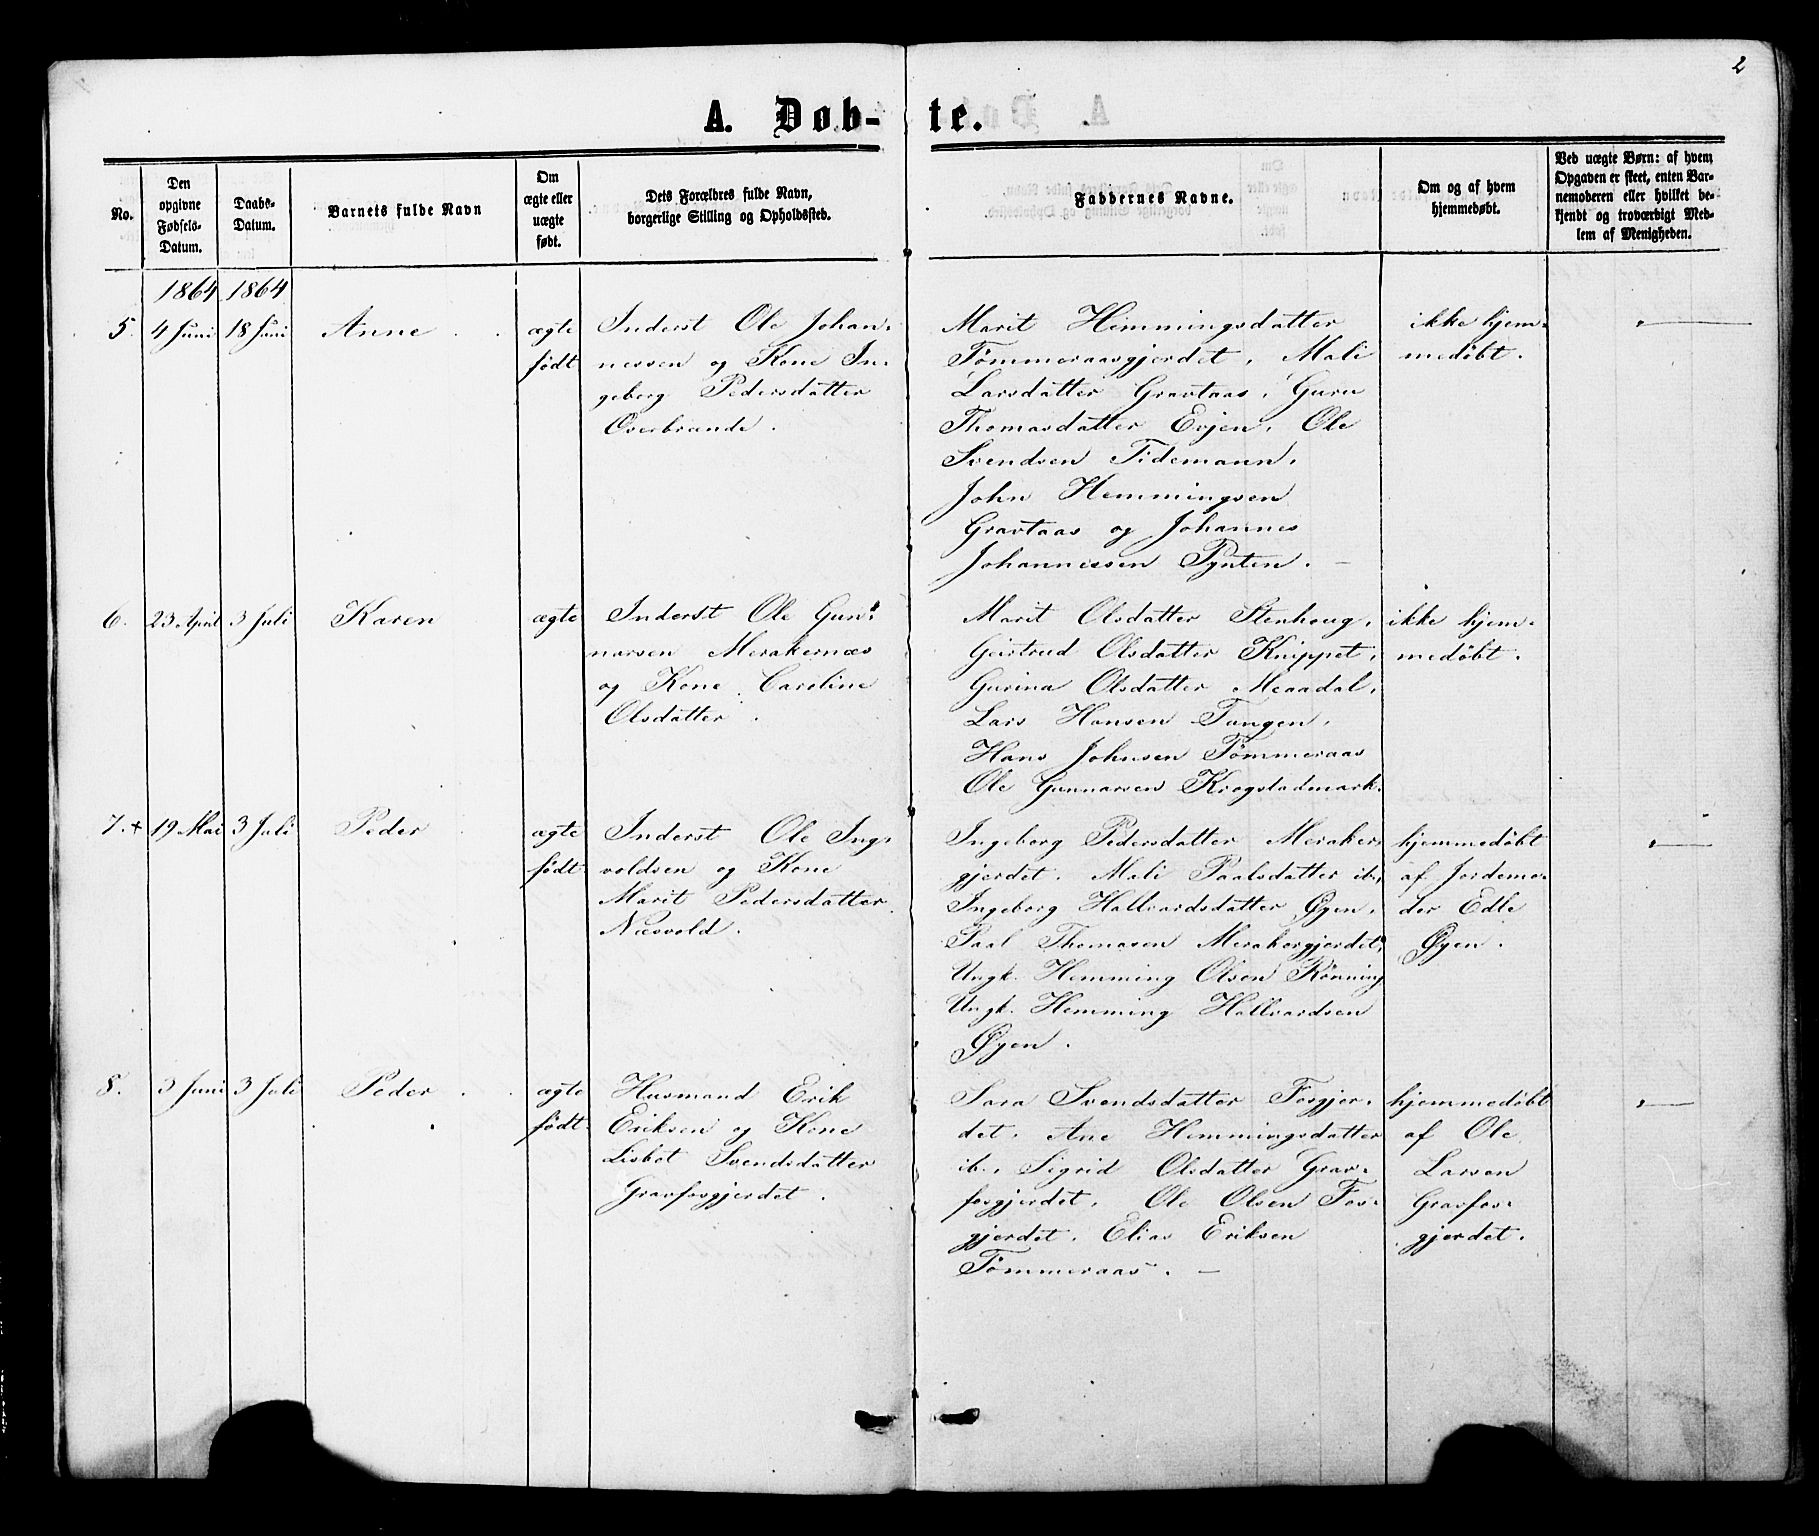 2
A. Døb-te.
No.
Den opgivne Fødsels-Datum.
Daabs-Datum.
Barnets fulde Navn
Om ægte eller uægte født.
Dets Forældres fulde Navn, borgerlige Stilling og Opholdssted.
Faddernes Navne.
Om og af hvem hjemmedøbt.
Ved uægte Børn: af hvem Opgaven er skeet, enten Bar-nemoderen eller hvilket be-kjendt og troværdigt Med-lem af Menigheden.
1864 1864
5. 4 Juni 18 Juni Anne
ægte
født
Inderst Ole Johan-
nessen og Kone In-
geborg Pedersdatter
Overbrande.
Marit Hemmingsdatter
Tømmeraasgjerdet, Mali
Larsdatter Gravtaas, Guru
Thomasdatter Evjen, Ole
Svendsen Tidemann,
John Hemmingsen
Gravtaas og Johannes
Johannessen Pynten. —
ikke hjem-
medøbt.
6. 23 April 3 Juli Karen
ægte
Inderst Ole Gun-
narsen Merakernæs
og Kone Caroline
Olsdatter.
Marit Olsdatter Stenhoug,
Geirtrud Olsdatter Knippet,
Gurina Olsdatter Meaadal,
Lars Hansen Tangen,
Hans Johnsen Tømmeraas
Ole Gunnarsen Krogstadmark.
ikke hjem-
medøbt.
7. + 19 Mai 3 Juli Peder
ægte
født
Inderst Ole Ing-
voldsen og Kone
Marit Pedersdatter
Næsvold.
Ingeborg Pedersdatter Meraker-
gjerdet, Mali Paalsdatter ib.,
Ingeborg Hallvardsdatter Øyen,
Paal Thomasen Merakergjerdet,
Ungk. Hemming Olsen Rønning
Ungk. Hemming Hallvardsen
Øyen.
hjemmedøbt
af Jordemo-
der Edle
Øyen.
8. 3 Juni 3 Juli Peder
ægte
født
Husmand Erik
Eriksen og Kone
Lisbet Svendsdatter
Gravfosgjerdet.
Sara Svendsdatter Fosgjer-
det, Ane Hemmingsdatter
ib., Sigrid Olsdatter Grav-
fosgjerdet, Ole Olsen Fos-
gjerdet, Elias Eriksen
Tømmeraas. —
hjemmedøbt
af Ole
Larsen
Gravfos-
gjerdet.